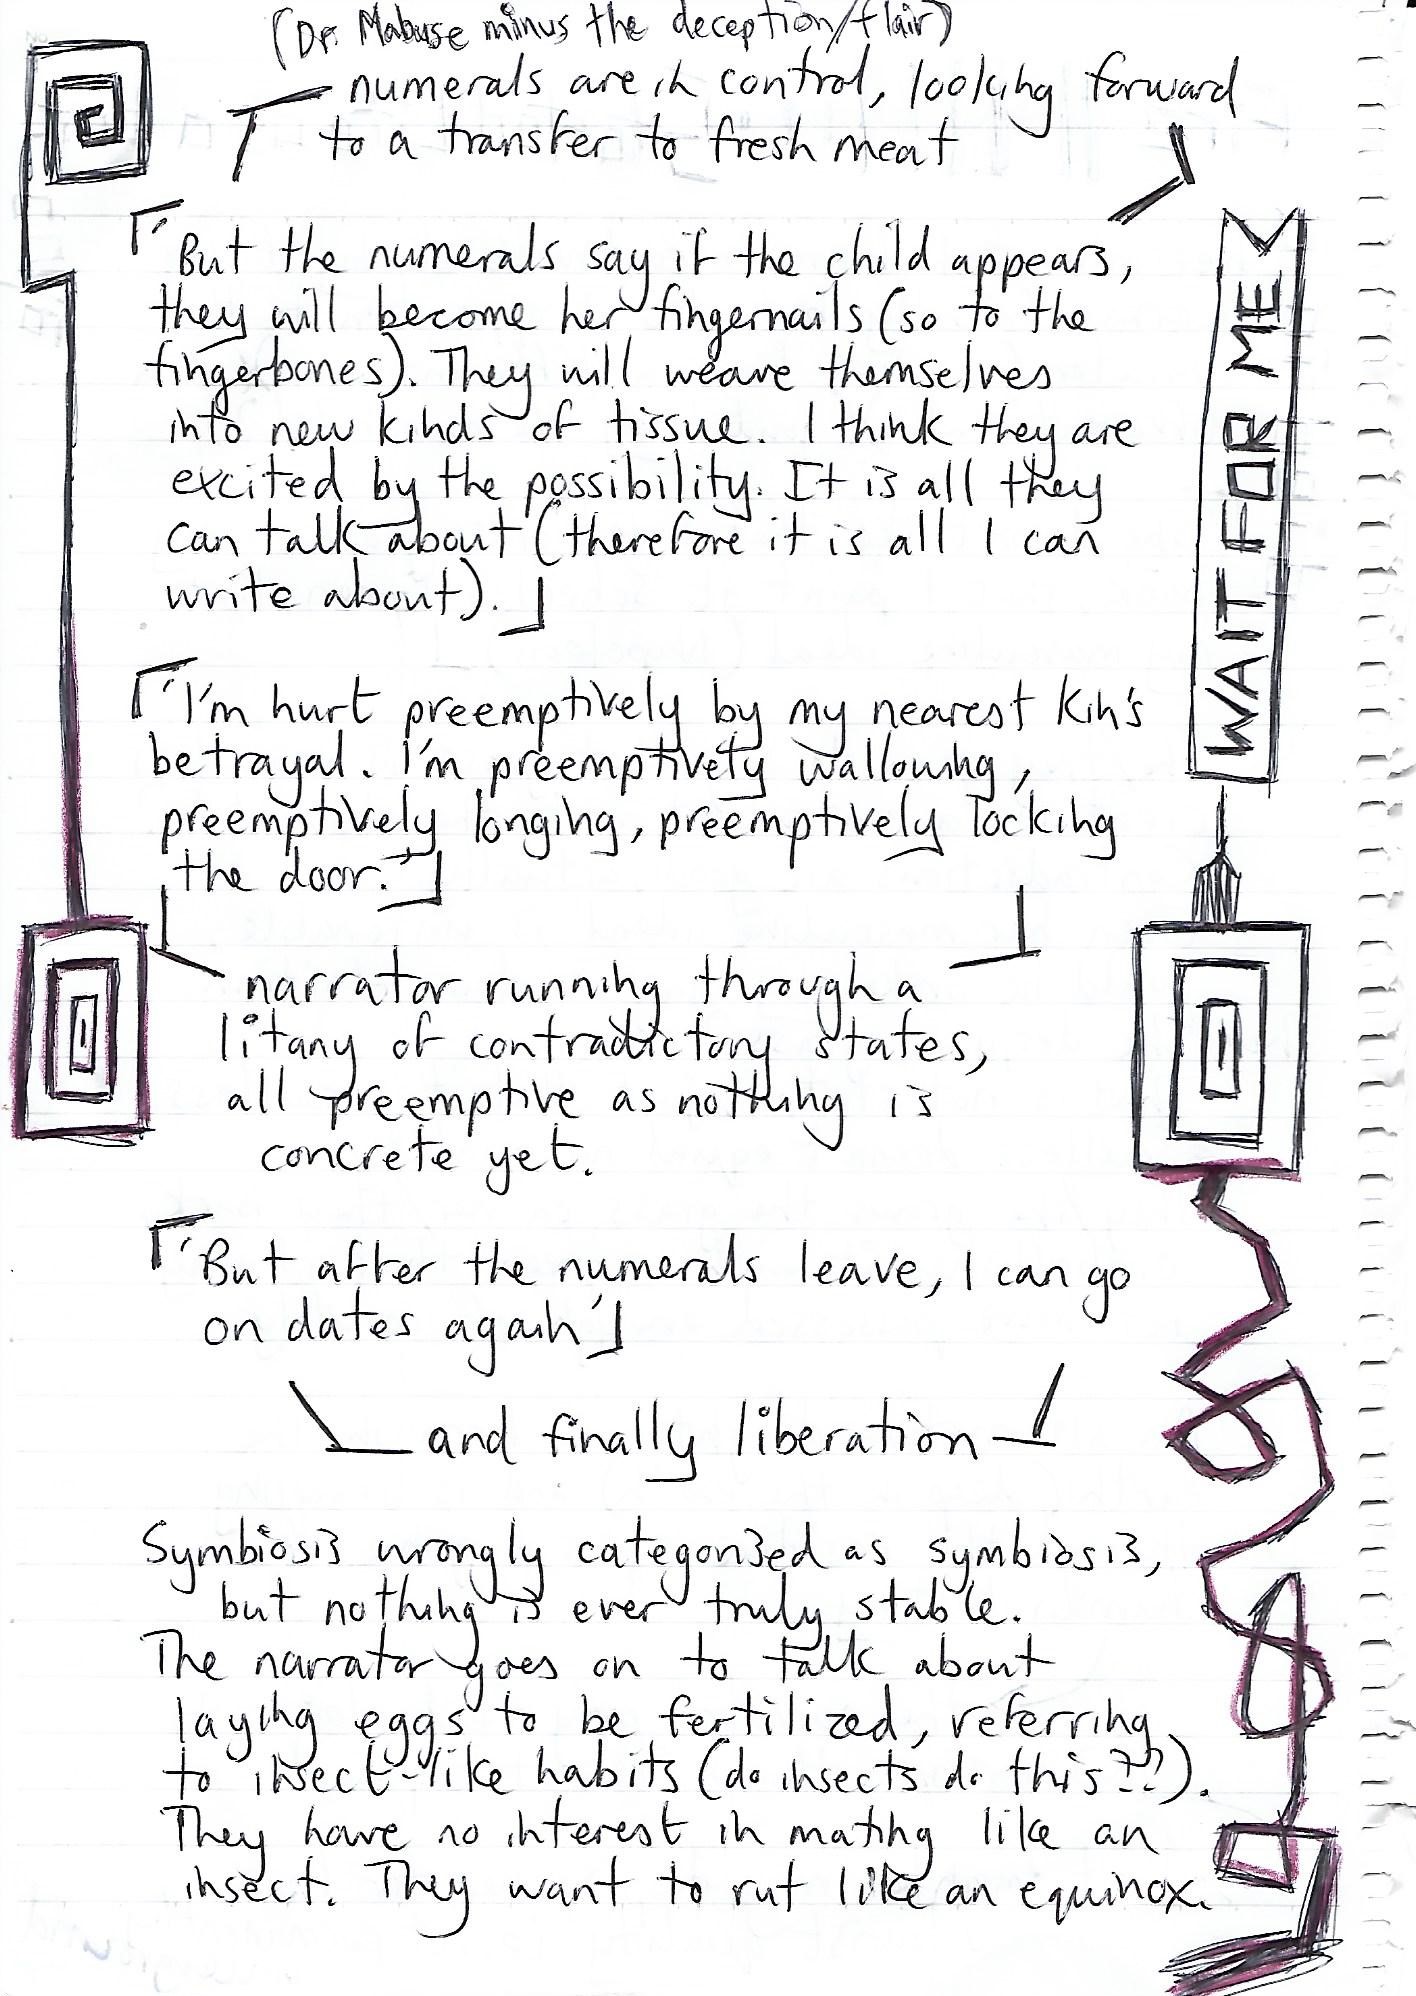 (Dr. Mabuse minus the deception/flair)
numerals are in control, looking forward
to a transfer to fresh meat
「'But the numerals say if the child appears,
they will become her fingernails (so to the
fingerbones). They will weave themselves
into new kinds of tissue. I think they are
excited by the possibility. It is all they
can talk about (therefore it is all I can
write about).」
「'I'm hurt preemptively by my nearest kin's
betrayal. I'm preemptively wallowing,
preemptively longing, preemptively locking
the door.'」
narrator running through a
litany of contradictory states,
all preemptive as nothing is
concrete yet.
「'But after the numerals leave, I can go
on dates again'」
and finally liberation
Symbiosis wrongly categorized as symbiosis,
but nothing is ever truly stable.
The narrator goes on to talk about
laying eggs to be fertilized, referring
to insect-like habits (do insects do this??).
They have no interest in mating like an
insect. They want to rut like an equinox.
WAIT FOR ME